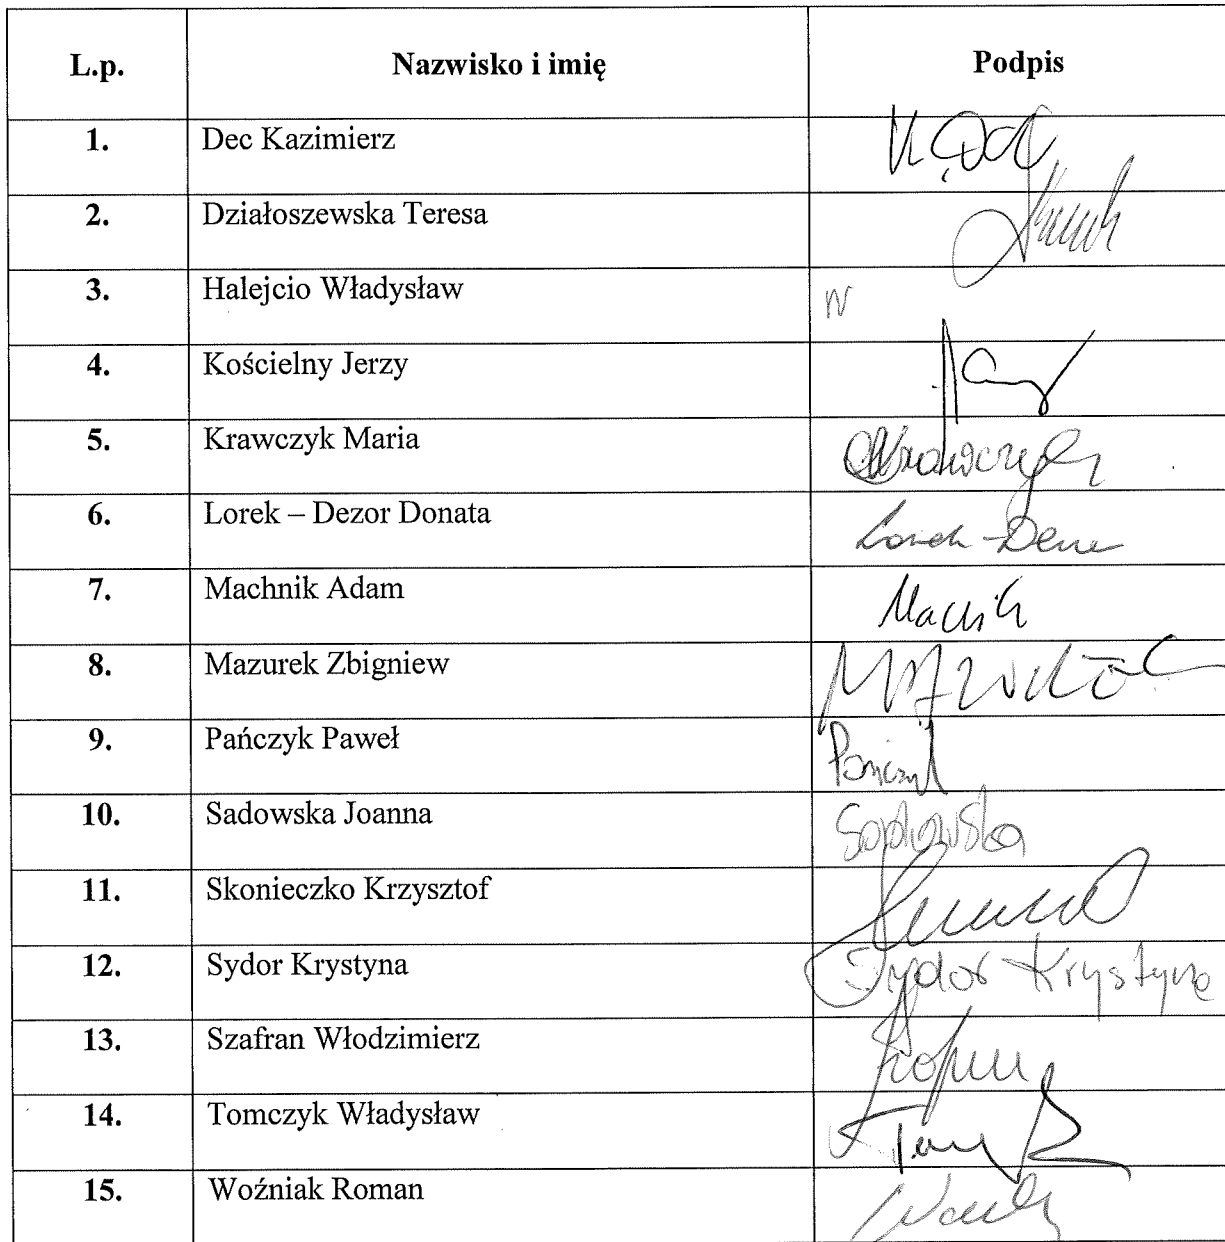 L.p. Nazwisko i imię Podpis
1. Dec Kazimierz
2. Działoszewska Teresa
3. Halejcio Władysław
4. Kościelny Jerzy
5. Krawczyk Maria Krawczyk
6. Lorek – Dezor Donata
7. Machnik Adam
8. Mazurek Zbigniew
9. Pańczyk Paweł Pańczyk
10. Sadowska Joanna Sadowska
11. Skonieczko Krzysztof
12. Sydor Krystyna Sydor Krystyna
13. Szafran Włodzimierz
14. Tomczyk Władysław
15. Woźniak Roman